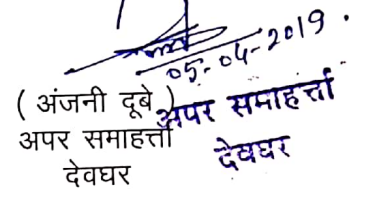 05-04-2019.
( अंजनी दूबे )
अपर समाहर्त्ता
देवघर
अपर समाहर्त्ता
देवघर